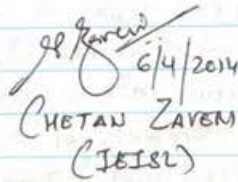 6/4/2014
CHETAN ZAVERI
(IEISL)